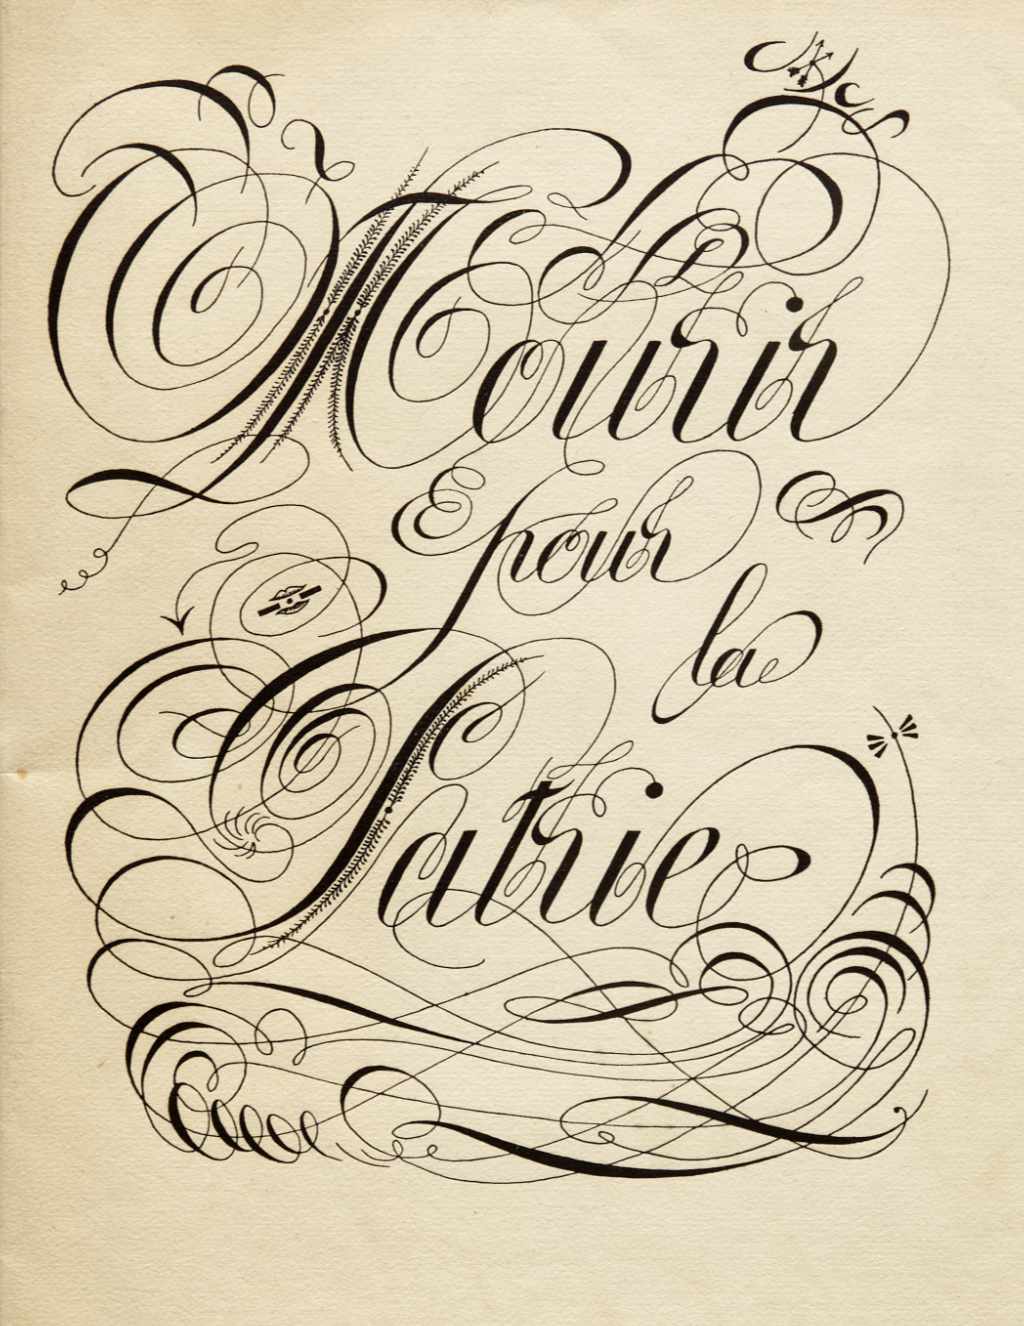 Mourir
pour
la
Patrie